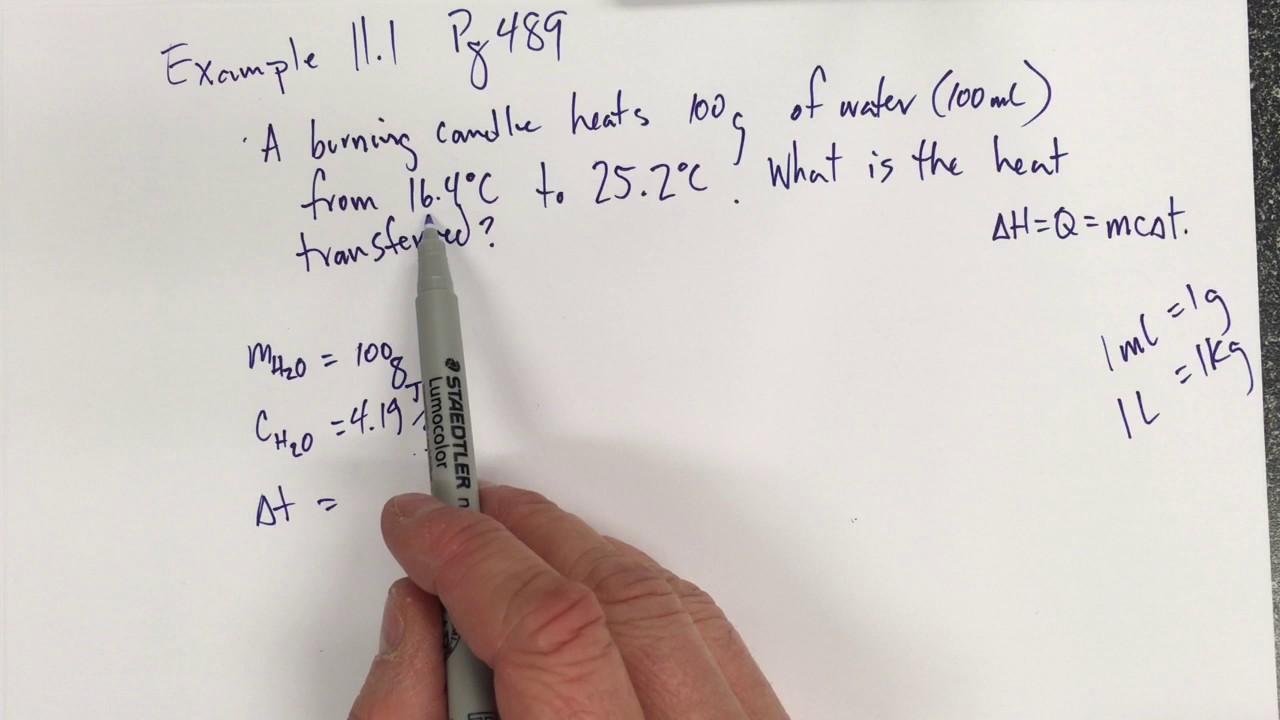 Example 11.1 Pg 489
A burning candle heats 100g of water (100ml)
from 16.4°C to 25.2°C. What is the heat
transferred?
ΔH=Q=mcΔt.
1ml =1g
1L =1kg
mH₂O = 100g
CH₂O =4.19 J/
Δt =
STAEDTLER
Lumocolor